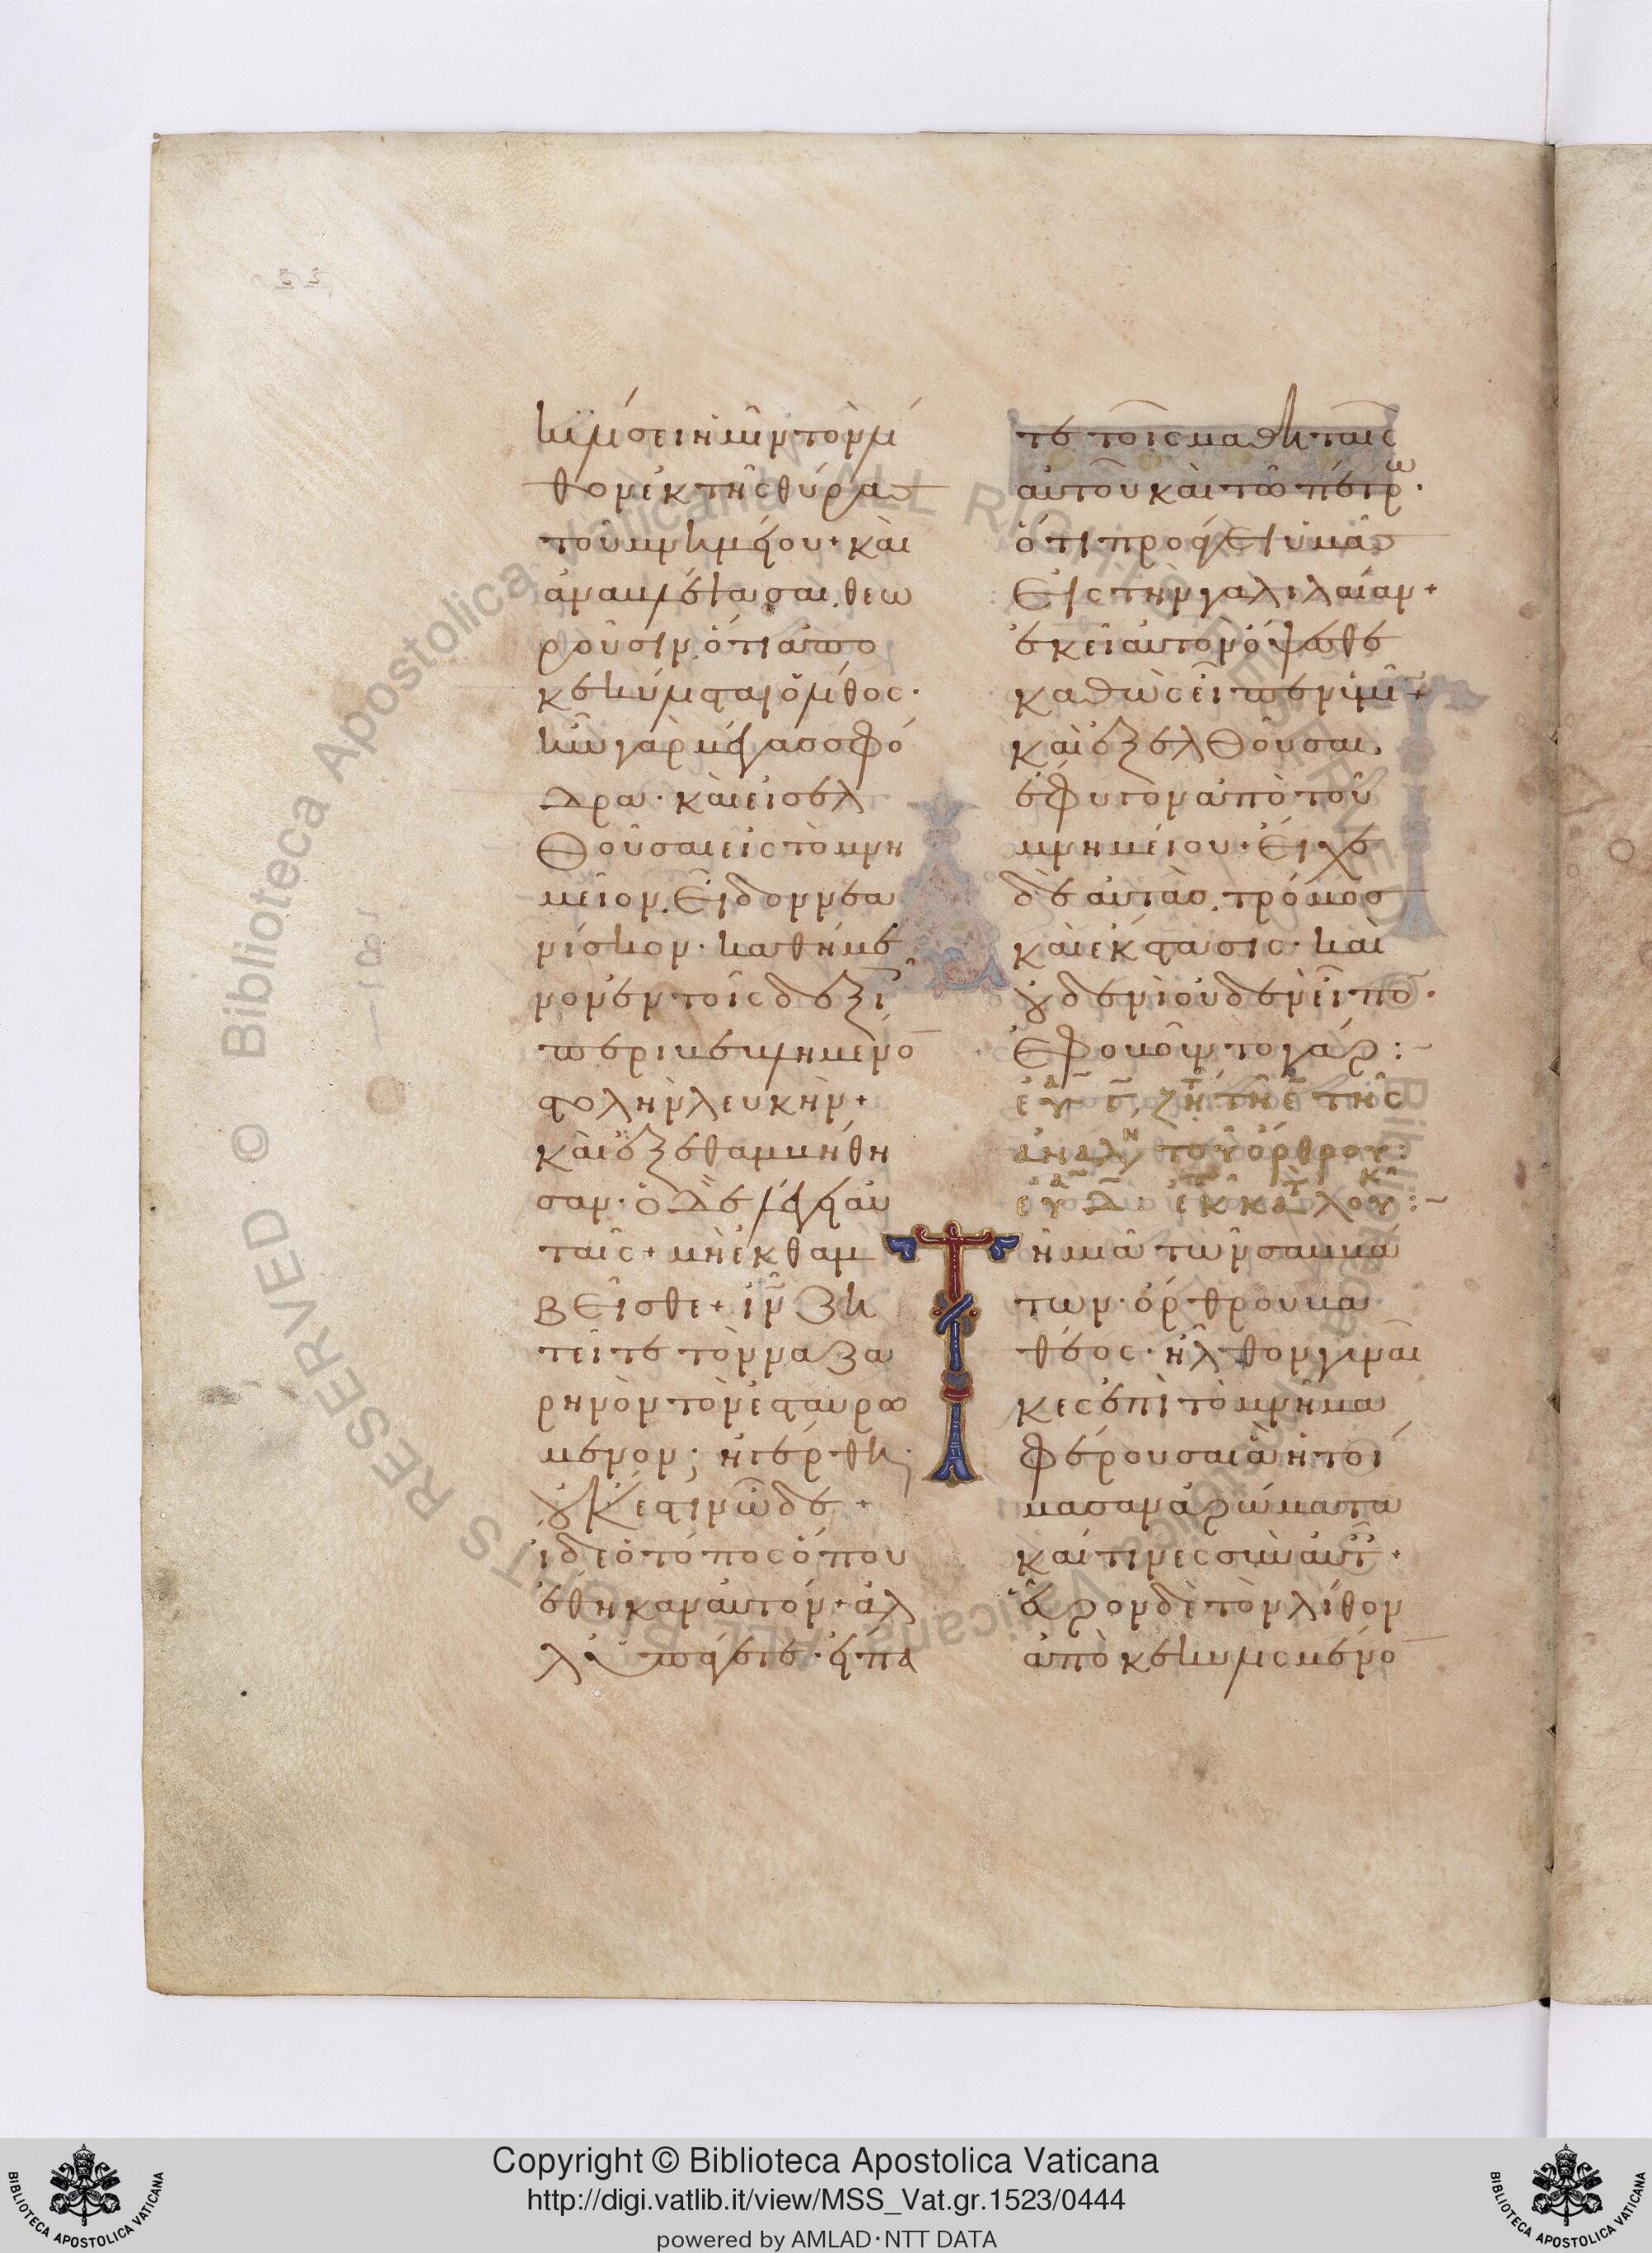 κυλίσει ἡμῖν τὸν λί
θον ἐκ τῆς θύρας
τοῦ μνημείου· καὶ
ἀναβλέψασαι, θεω
ροῦσιν, ὅτι ἀπο
κεκύλισται ὁ λίθος·
ἦν γὰρ μέγας σφό
δρα· καὶ εἰσελ
θοῦσαι εἰς τὸ μνη
μεῖον, εἶδον νεα
νίσκον· καθήμε
νον ἐν τοῖς δεξιοῖς
περιβεβλημένο
στολὴν λευκὴν·
καὶ ἐξεθαμβήθη
σαν· ὁ δὲ λέγει αὐ
ταῖς· μὴ ἐκθαμ
βεῖσθε· ἰν ζη
τεῖτε τὸν ναζα
ρηνὸν τὸν ἐσταυρω
μένον; ἠγέρθη·
οὐκ ἔστιν ὧδε·
ἴδε ὁ τόπος ὅπου
ἔθηκαν αὐτόν· ἀλ
λ' ὑπάγετε· εἴπα
τε τοῖς μαθηταῖς
αὐτοῦ καὶ τῶ πέτρω·
ὅτι προάγει ὑμᾶς
εἰς τὴν γαλιλαίαν·
ἐκεῖ αὐτὸν ὄψεσθε
καθὼς εἶπεν ὑμῖν·
καὶ ἐξελθοῦσαι,
ἔφυγον ἀπὸ τοῦ
μνημείου· εἶχε
δὲ αὐτὰς, τρόμος
καὶ ἔκστασις· καὶ
οὐδενὶ οὐδὲν εἶπον·
ἐφοβοῦντο γάρ:~
τοῦ ὄρθρου:
ἐκ κατ λουκ:~
Τῆ μιᾶ τῶν σαββά
των· ὄρθρου βα
θέος· ἦλθον γυναῖ
κες ἐπὶ τὸ μνῆμα
φέρουσαι ἃ ἡτοί
μασαν ἀρώματα
καί τινες σὺν αὐτ·
εὗρον δὲ τὸν λίθον
ἀποκεκυλισμένο
Copyright © Biblioteca Apostolica Vaticana
http://digi.vatlib.it/view/MSS_Vat.gr.1523/0444
powered by AMLAD·NTT DATA
BIBLIOTECA APOSTOLICA VATICANA
BIBLIOTECA APOSTOLICA VATICANA
© Biblioteca Apostolica Vaticana ALL RIGHTS RESERVED © Biblioteca Apostolica Vaticana ALL RIGHTS RESERVED